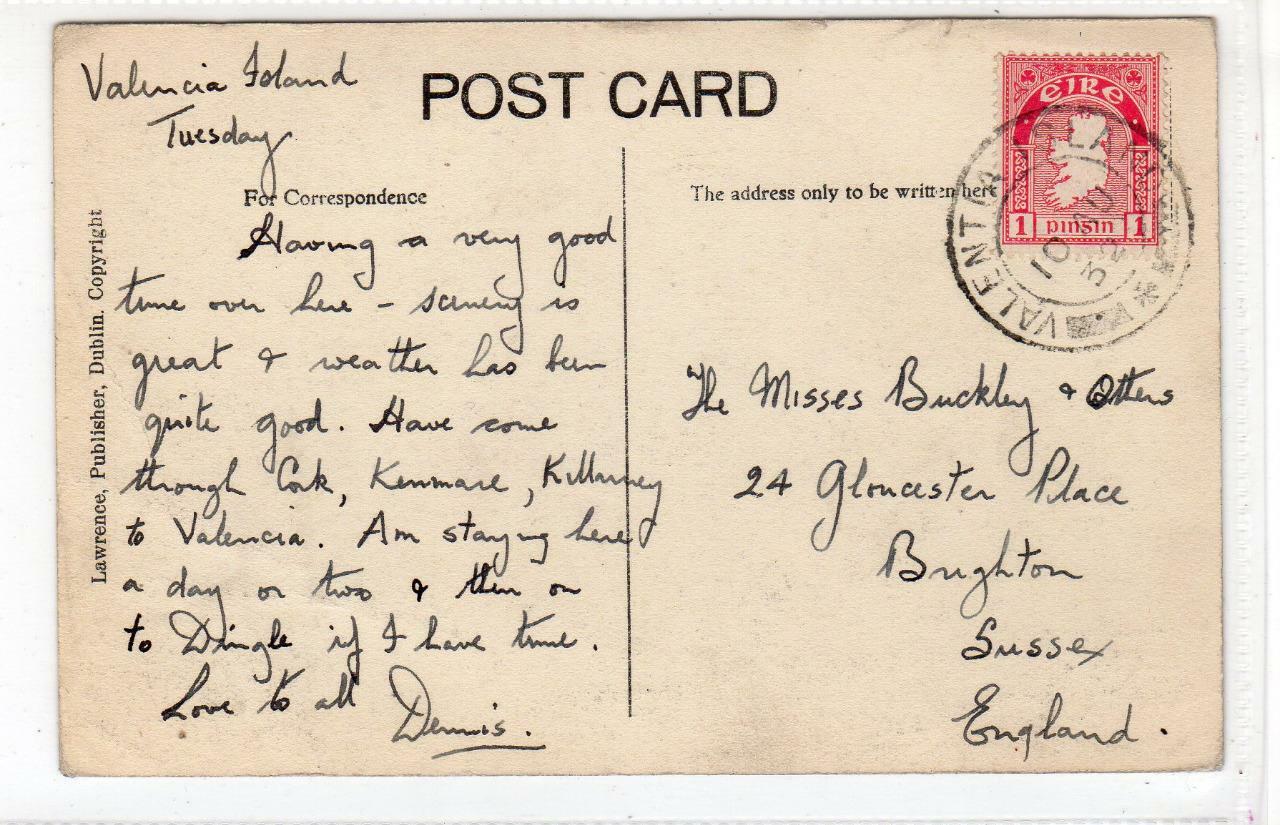 Valencia Island
Tuesday
POST CARD
For Correspondence
The address only to be written here
Lawrence, Publisher, Dublin. Copyright
Having a very good
time over here - scenery is
great & weather has been
quite good. Have come
through Cork, Kenmare, Killarney
to Valencia. Am staying here
a day or two & then on
to Dingle if I have time.
Love to all
Dennis.
ÉIRE
1 pinsin 1
VALENTIA ISLAND
10 AU
32
The Misses Buckley & Others
24 Gloucester Place
Brighton
Sussex
England.